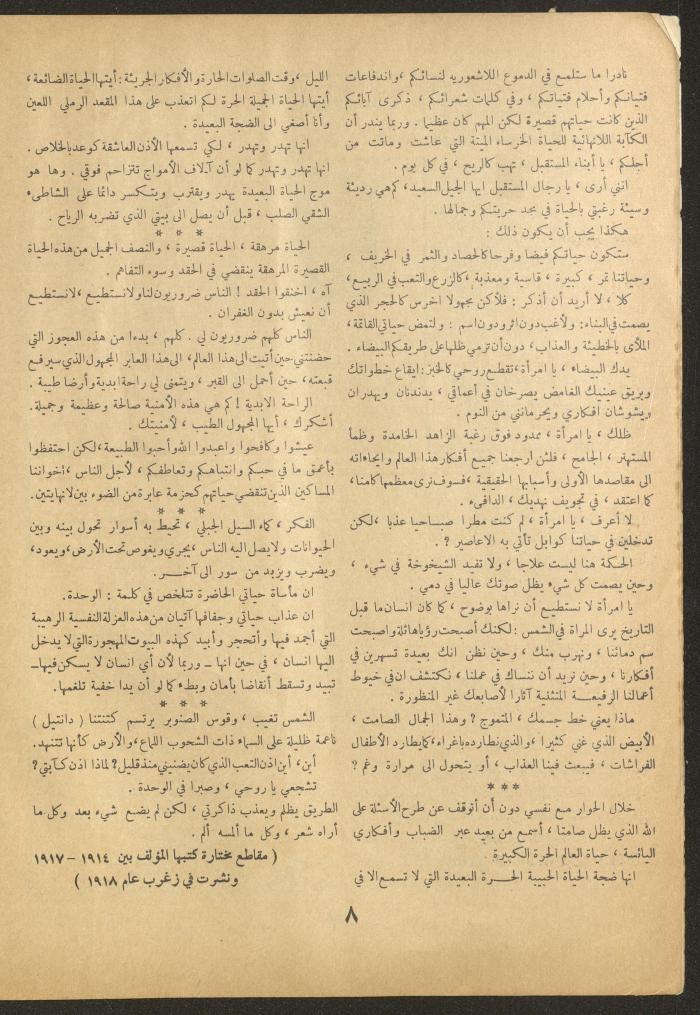 نادرا ما ستلمع في الدموع اللاشعوريه لنسائكم ، واندفاعات
فتيانكم وأحلام فتياتكم ، وفي كلمات شعرائكم ، ذكرى آبائكم
الذين كانت حياتهم قصيرة لكن المهم كان عظيما . وربما يندر أن
الكآبة اللانهائية للحياة الخرساء الميتة التي عاشت وماتت من
أجلكم ، يا أبناء المستقبل ، تهب كالريح ، في كل يوم .
انني أرى ، يا رجال المستقبل ايها الجيل السعيد ، كم هي رديئة
وسيئة رغبتي بالحياة في مجد حريتكم وجمالها .
هكذا يجب أن يكون ذلك :
ستكون حياتكم فيضا وفرحا كالحصاد والثمر في الخريف ،
وحياتنا تمر ، كبيرة ، قاسية ومعذبة ، كالزرع والتعب في الربيع ،
كلا ، لا أريد أن أذكر : فلأكن مجهولا اخرس كالحجر الذي
يصمت في البناء : ولأغب دون اثر ودون اسم : ولتمض حياتي القاتمة ،
الملأى بالخطيئة والعذاب ، دون أن ترمي ظلها على طريقكم البيضاء .
يدك البيضاء ، يا امرأة ، تقطع روحي كالخبز : ايقاع خطواتك
وبريق عينيك الغامض يصرخان في أعماقي ، يدندنان ويهدران
ويشوشان أفكاري ويحرمانني من النوم .
ظلك ، يا امرأة ، ممدود فوق رغبة الزاهد الخامدة وظمأ
المستهتر ، الجامح ، فلئن ارجعنا جميع أفكار هذا العالم وايحاءاته
الى مقاصدها الأولى وأسبابها الحقيقية ، فسوف نرى معظمها كامنا ،
كما اعتقد ، في تجويف نهديك ، الدافىء .
لا أعرف ، يا امرأة ، لم كنت مطرا صباحيا عذبا ، لكن
تدخلين في حياتنا كوابل تأتي به الاعاصير ؟ .
الحكمة هنا ليست علاجا ، ولا تفيد الشيخوخة في شيء ،
وحين يصمت كل شيء يظل صوتك عاليا في دمي .
يا امرأة لا نستطيع أن نراها بوضوح ، كما كان انسان ما قبل
التاريخ يرى المرأة في الشمس : لكنك أصبحت رؤيا هائلة واصبحت
سم دمائنا ، ونهرب منك ، وحين نظن انك بعيدة تسهرين في
أفكارنا ، وحين نريد أن ننساك في عملنا ، نكتشف ان في خيوط
أعمالنا الرفيعة المنثنية آثارا لأصابعك غير المنظورة .
ماذا يعني خط جسمك ، المتموج ؟ وهذا الجمال الصامت ،
الأبيض الذي غني كثيرا ، والذي نطارده باغراء ، كما يطارد الأطفال
الفراشات ، فيبعث فينا العذاب ، أو يتحول الى مرارة وغم ؟
* * *
خلال الحوار مع نفسي دون أن أتوقف عن طرح الأسئلة على
الله الذي يظل صامتا ، أسمع من بعيد عبر الضباب وأفكاري
اليائسة ، حياة العالم الحرة الكبيرة .
انها ضجة الحياة الحبيبة الحرة البعيدة التي لا تسمع الا في
الليل ، وقت الصلوات الحارة والأفكار الجريئة : أيتها الحياة الضائعة ،
أيتها الحياة الجميلة الحرة لكم اتعذب على هذا المقعد الرملي اللعين
وأنا أصغي الى الضجة البعيدة .
انها تهدر وتهدر ، لكي تسمعها الأذن العاشقة كوعد بالخلاص .
انها تهدر وتهدر كما لو أن آلاف الأمواج تتزاحم فوقي . وها هو
موج الحياة البعيدة يهدر ويقترب ويتكسر دائما على الشاطىء
الشقي الصلب ، قبل أن يصل الى بيتي الذي تضربه الرياح .
* * *
الحياة مرهقة ، الحياة قصيرة ، والنصف الجميل من هذه الحياة
القصيرة المرهقة ينقضي في الحقد وسوء التفاهم .
آه ، اخنقوا الحقد ! الناس ضروريون لنا ولا نستطيع ، لا نستطيع
أن نعيش بدون الغفران .
الناس كلهم ضروريون لي . كلهم ، بدءا من هذه العجوز التي
حضنتني حين أتيت الى هذا العالم ، الى هذا العابر المجهول الذي سيرفع
قبعته ، حين أحمل الى القبر ، ويتمنى لي راحة ابدية وأرضا طيبة .
الراحة الابدية ! كم هي هذه الأمنية صالحة وعظيمة وجميلة .
أشكرك ، أيها المجهول الطيب ، لأمنيتك .
عيشوا وكافحوا واعبدوا الله وأحبوا الطبيعة ، لكن احتفظوا
بأعمق ما في حبكم وانتباهكم وتعاطفكم ، لأجل الناس ، اخواننا
المساكين الذين تنقضي حياتهم كحزمة عابرة من الضوء بين لانهايتين .
* * *
الفكر ، كماء السيل الجبلي ، تحيط به أسوار تحول بينه وبين
الحيوانات ولا يصل اليه الناس ، يجري ويغوص تحت الأرض ، ويعود ،
ويضرب ويزبد من سور الى آخر .
ان مأساة حياتي الحاضرة تتلخص في كلمة : الوحدة .
ان عذاب حياتي وجفافها آتيان من هذه العزلة النفسية الرهيبة
التي أجمد فيها وأتحجر وأبيد كهذه البيوت المهجورة التي لا يدخل
اليها انسان ، في حين انها ــ وربما لأن أي انسان لا يسكن فيها ــ
تبيد وتسقط أنقاضا بأمان وبطء كما لو أن يدا خفية تلغمها .
* * *
الشمس تغيب ، وقوس الصنوبر يرتسم كتنتنا ( دانتيل )
ناعمة ظليلة على السماء ذات الشحوب اللماع ، والأرض كأنها تتنهد .
أين ، أين اذن التعب الذي كان يضنيني منذ قليل ؟ لماذا اذن كآبتي ؟
تشجعي يا روحي ، وصبرا في الوحدة .
الطريق يظلم ويعذب ذاكرتي ، لكن لم يضع شيء بعد وكل ما
أراه شعر ، وكل ما ألمسه ألم .
( مقاطع مختارة كتبها المؤلف بين ١٩١٤ – ١٩١٧
ونشرت في زغرب عام ١٩١٨ )
٨